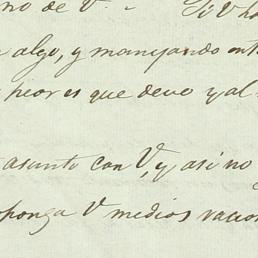 no de V. - Si V ha
algo, y manejando ent
peor es que devo y al
asunto con V, y asi no
ponga V medios racio